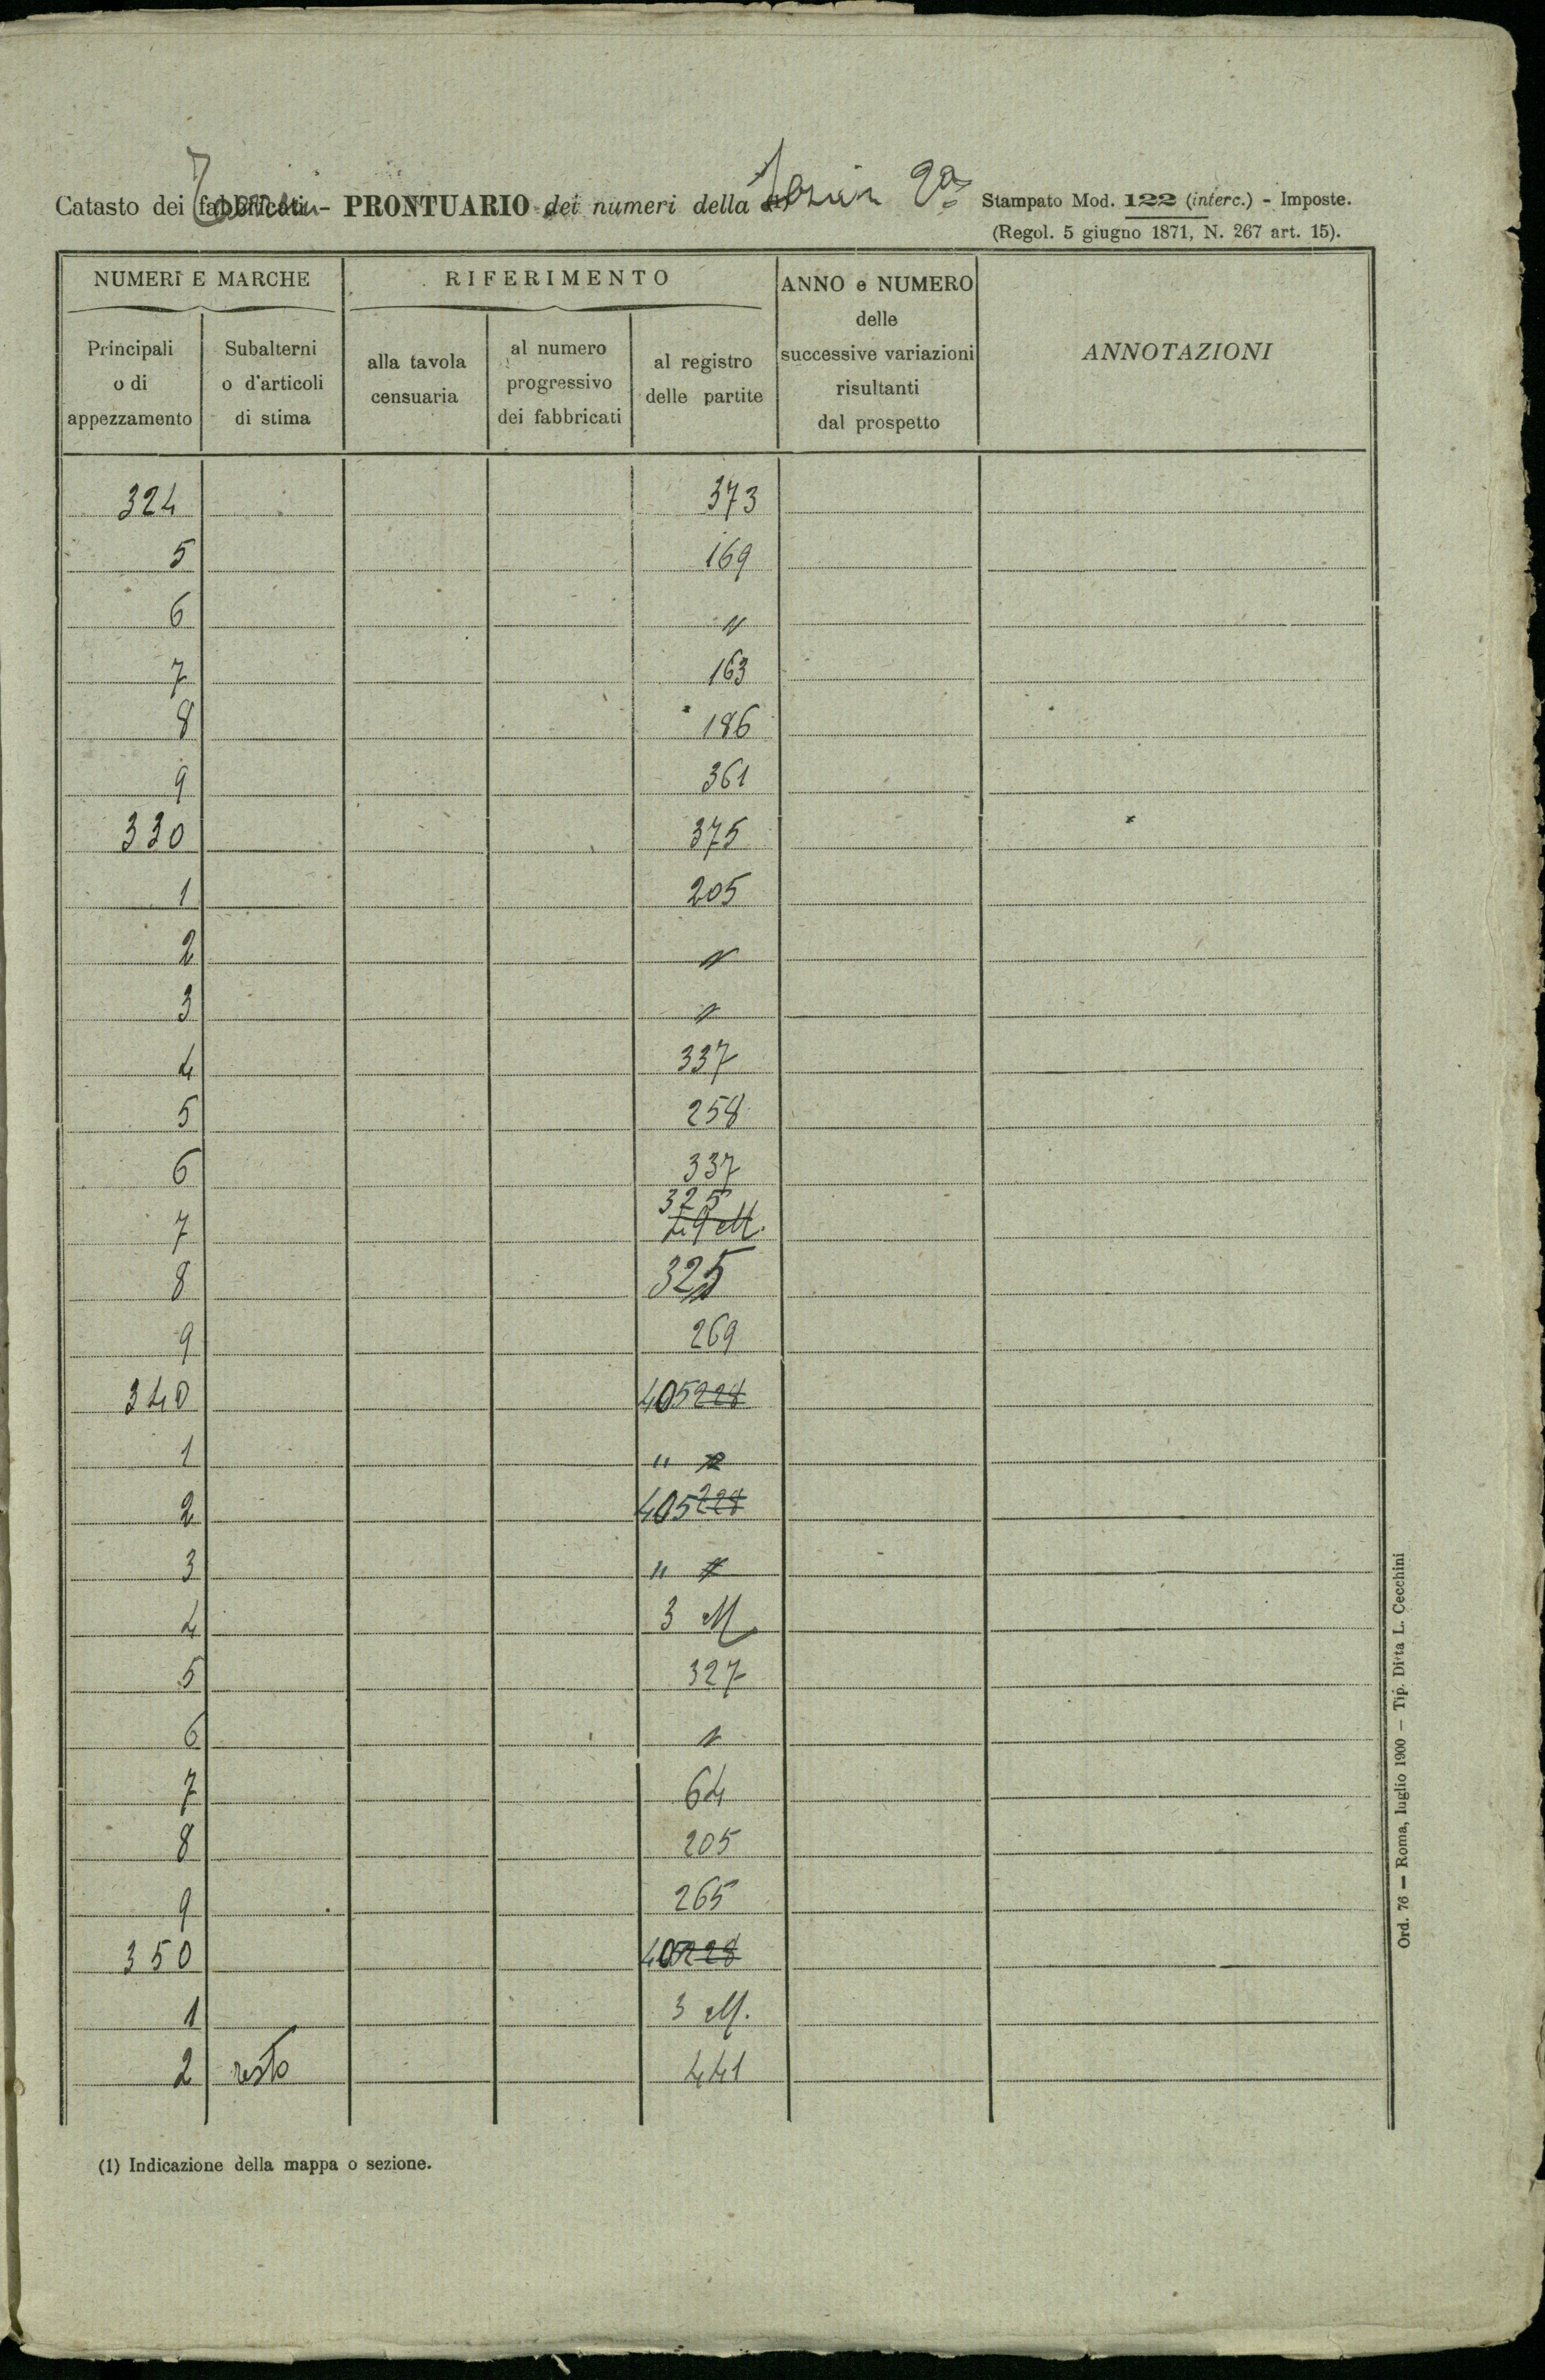 Catasto dei fabbricati Terreni - PRONTUARIO dei numeri della (1) 2ª Stampato Mod. 122 (interc.) - Imposte.
(Regol. 5 giugno 1871, N. 267 art. 15).
NUMERI E MARCHE RIFERIMENTO ANNO e NUMERO delle successive variazioni risultanti dal prospetto ANNOTAZIONI
Principali o di appezzamento Subalterni o d'articoli di stima alla tavola censuaria al numero progressivo dei fabbricati al registro delle partite
324 373
5 169
6 "
7 163
8 186
9 361
330 375
1 205
2 "
3 "
4 337
5 258
6 337
325
7
8 325
9 269
340 405 228
1 " "
2 405 228
3 " "
4 3 M
5 327
6 "
7 64
8 205
9 265
350 405 228
1 3 M.
2 resto 441
(1) Indicazione della mappa o sezione.
Ord. 76 — Roma, luglio 1900 — Tip. Ditta L. Cecchini